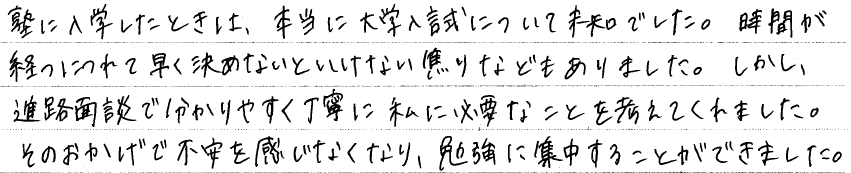 塾に入学したときは、本当に大学入試について未知でした。時間が
経つにつれて早く決めないといけない焦りなどもありました。しかし、
進路面談で分かりやすく丁寧に私に必要なことを考えてくれました。
そのおかげで不安を感じなくなり、勉強に集中することができました。